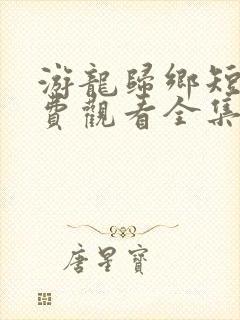 游龍歸鄉短
費觀看全集
唐星寶